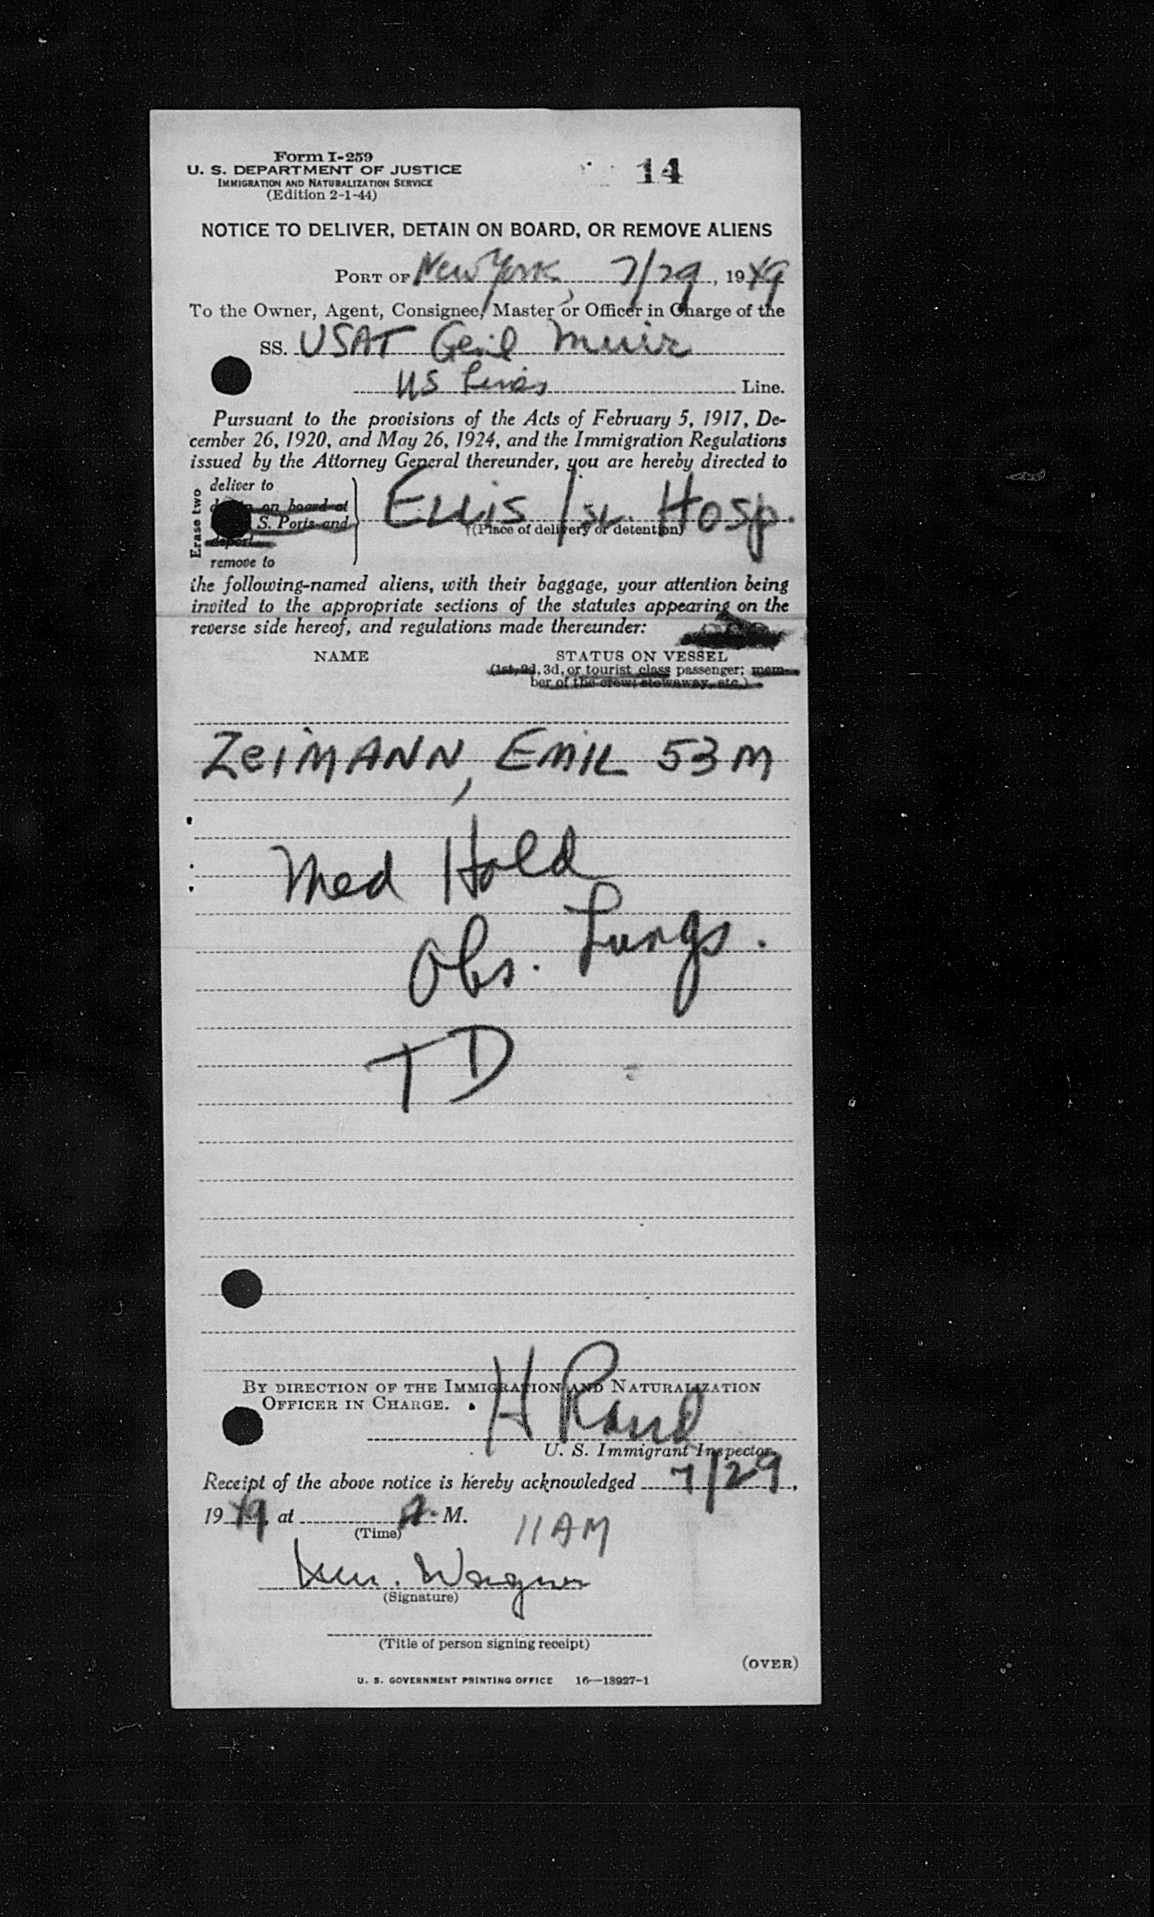 Form I-259
U. S. DEPARTMENT OF JUSTICE
IMMIGRATION AND NATURALIZATION SERVICE
(Edition 2-1-44)
14
NOTICE TO DELIVER, DETAIN ON BOARD, OR REMOVE ALIENS
PORT OF New York, 7/29, 1949
To the Owner, Agent, Consignee, Master or Officer in Charge of the
SS. USAT Gen'l Muir
US Lines Line.
Pursuant to the provisions of the Acts of February 5, 1917, De-
cember 26, 1920, and May 26, 1924, and the Immigration Regulations
issued by the Attorney General thereunder, you are hereby directed to
Erase two
deliver to
on board at
S. Ports and
deport
remove to
Ellis Isl. Hosp.
(Place of delivery or detention)
the following-named aliens, with their baggage, your attention being
invited to the appropriate sections of the statutes appearing on the
reverse side hereof, and regulations made thereunder:
NAME STATUS ON VESSEL
(1st, 2d, 3d, or tourist class passenger; mem-
ber of the crew; stowaway, etc.)
ZEIMANN, EMIL 53 M
Med Hold
Obs. Lungs.
TD
BY DIRECTION OF THE IMMIGRATION AND NATURALIZATION
OFFICER IN CHARGE.
H Rand
U. S. Immigrant Inspector
Receipt of the above notice is hereby acknowledged 7/29,
1949 at A. M. 11 AM
(Time)
Wm. Wagner
(Signature)
(Title of person signing receipt)
(OVER)
U. S. GOVERNMENT PRINTING OFFICE 16—13927-1